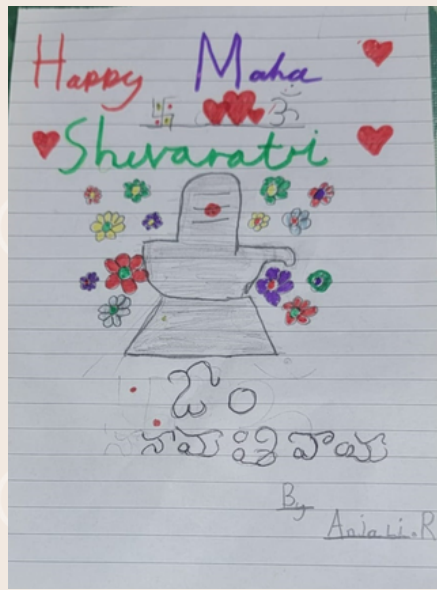 Happy Maha
ॐ
Shivaratri
ఓం
నామ శివాయ
By
Anjali.R